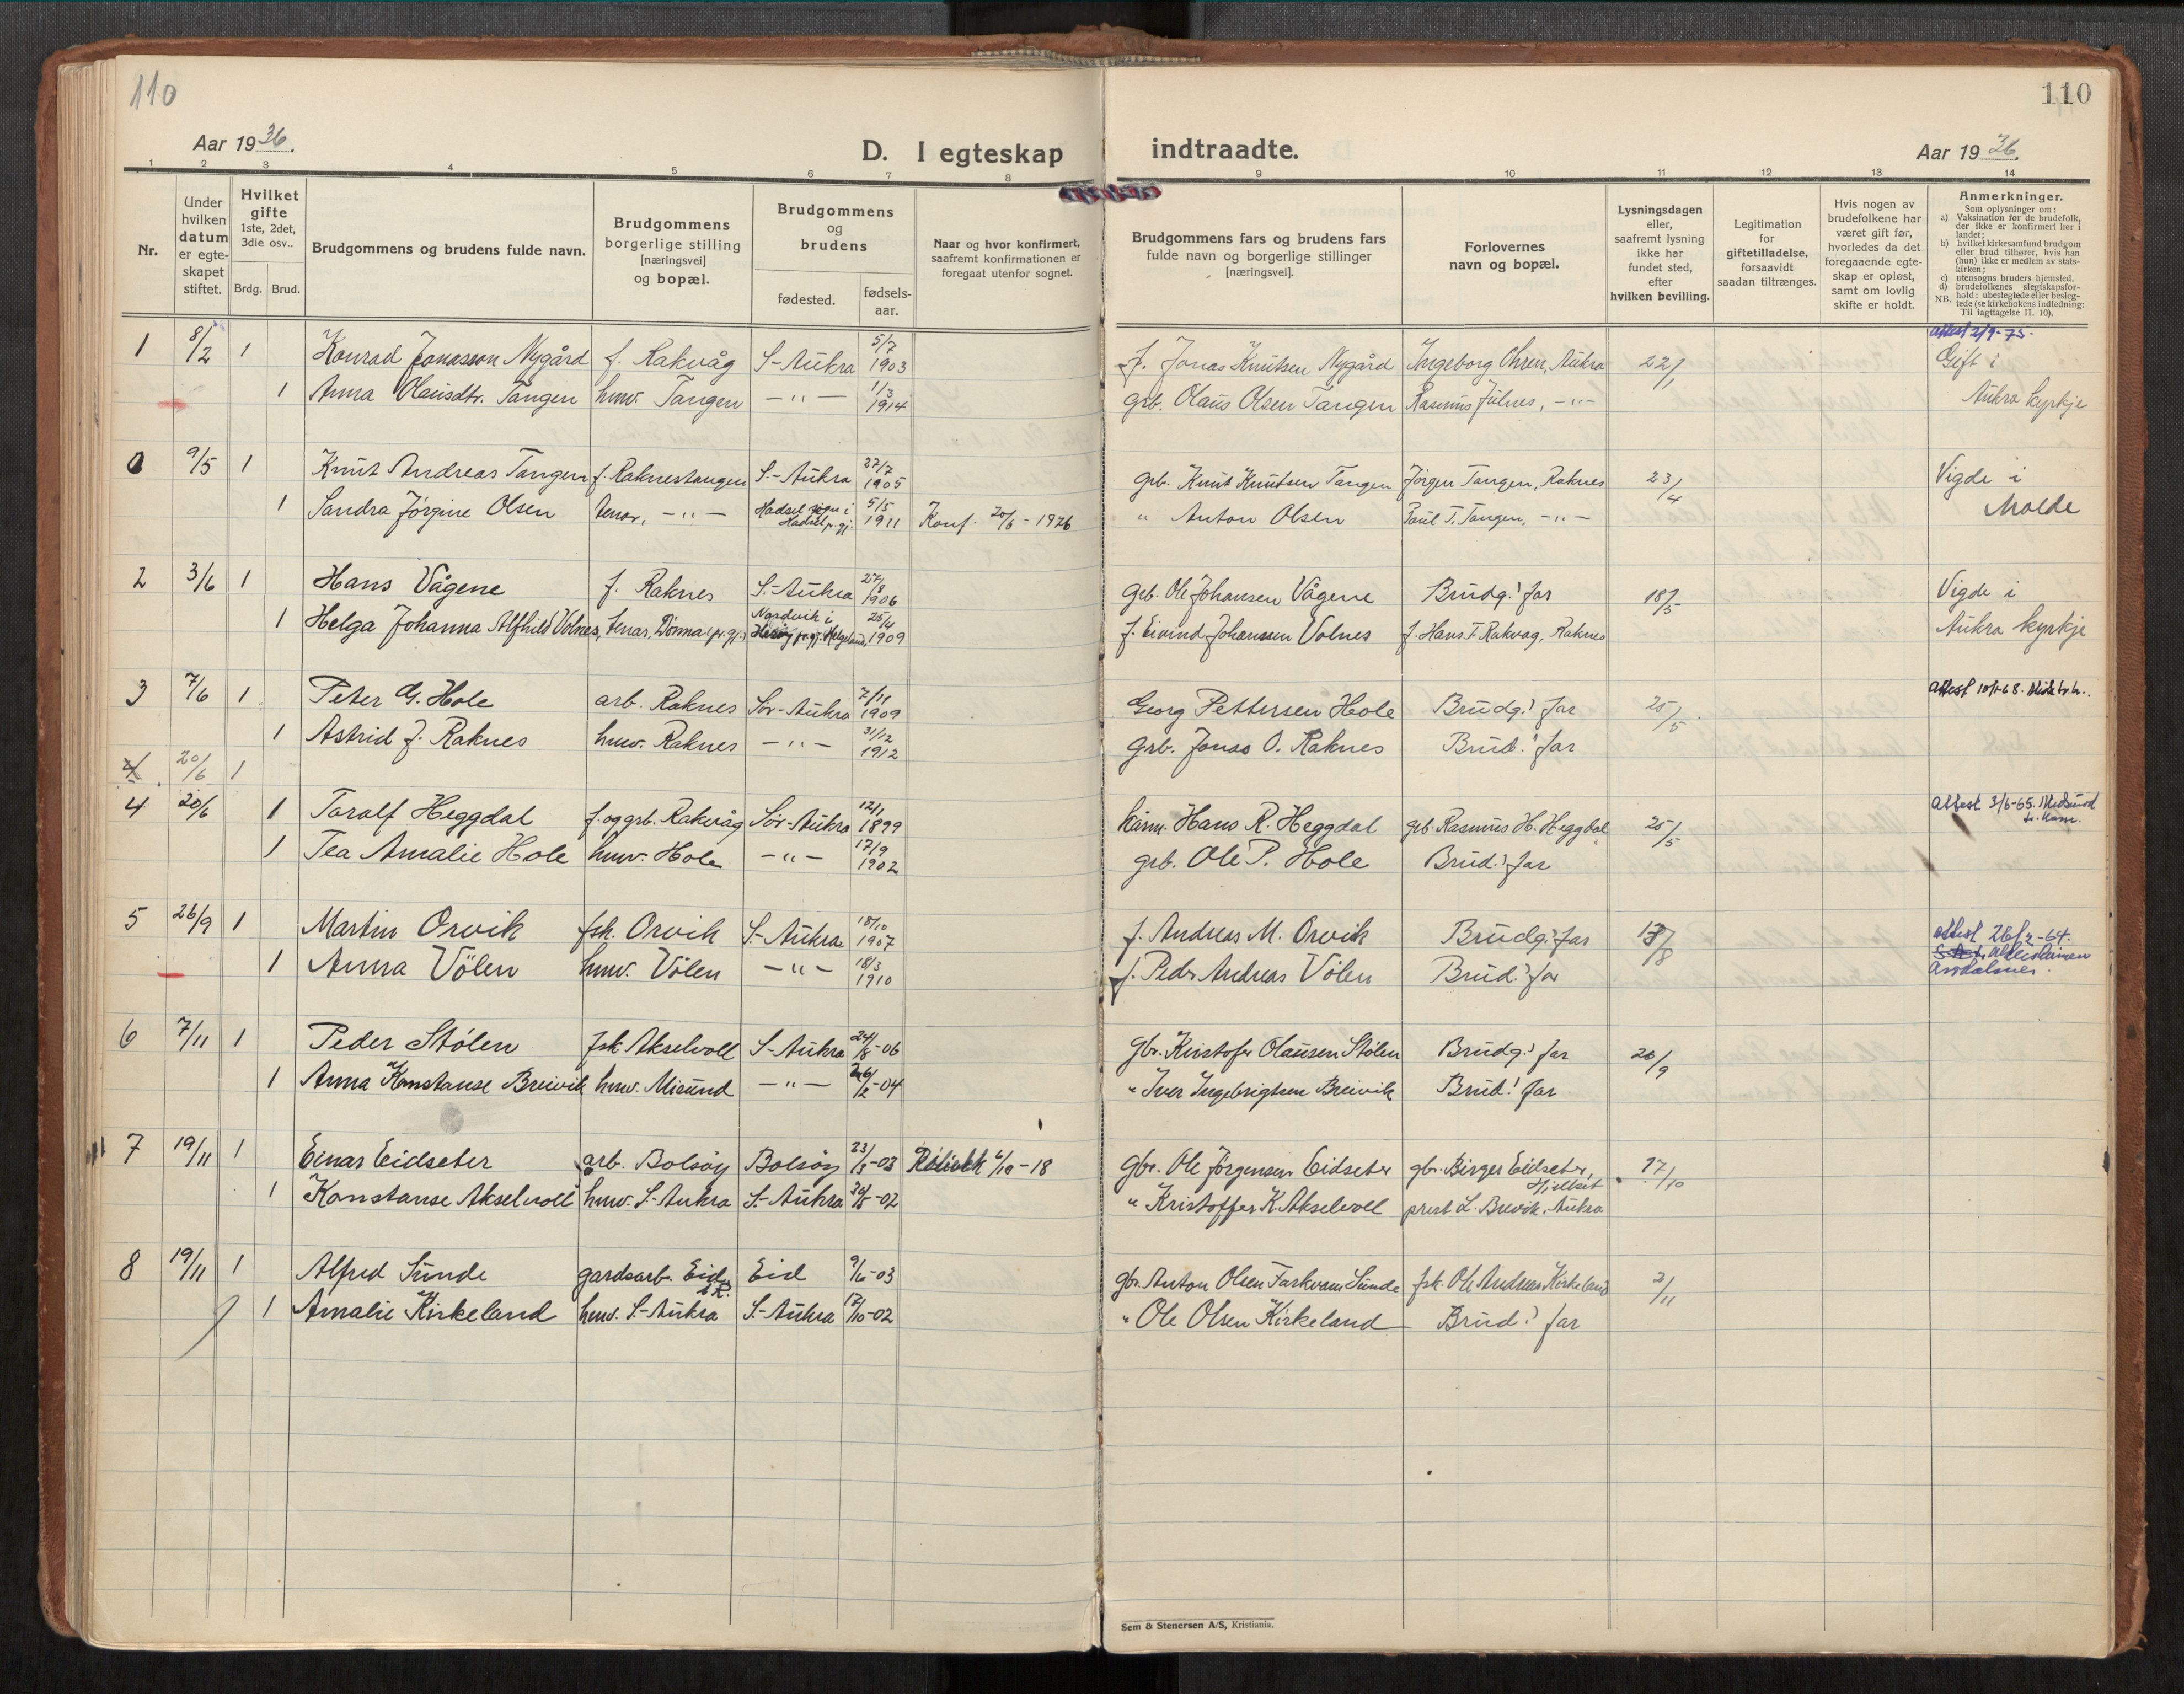 110
110
Aar 1936.
D. I egteskap
indtraadte.
Aar 1936.
1 2 3 4 5 6 7 8 9 10 11 12 13 14
Nr.
Under hvilken datum er egte-skapet stiftet.
Hvilket gifte 1ste, 2det, 3die osv..
Brdg. Brud.
Brudgommens og brudens fulde navn.
Brudgommens borgerlige stilling [næringsvei] og bopæl.
Brudgommens og brudens
fødested.
fødsels-aar.
Naar og hvor konfirmert, saafremt konfirmationen er foregaat utenfor sognet.
Brudgommens fars og brudens fars fulde navn og borgerlige stillinger [næringsvei].
Forlovernes navn og bopæl.
Lysningsdagen eller, saafremt lysning ikke har fundet sted, efter hvilken bevilling.
Legitimation for giftetilladelse, forsaavidt saadan tiltrænges.
Hvis nogen av brudefolkene har været gift før, hvorledes da det foregaaende egte-skap er opløst, samt om lovlig skifte er holdt.
Anmerkninger.
Som oplysninger om:
a) Vaksination før de brudefolk, der ikke er konfirmert her i landet;
b) hvilket kirkesamfund brudgom eller brud tilhører, hvis han (hun) ikke er medlem av stats-kirken;
c) utensogns bruders hjemsted.
d) brudefolkenes slegtskapsfor-hold: ubeslegtede eller besleg-tede (se kirkebokens indledning: Til iagttagelse II. 10).
NB.
attest 2/9-75.
1 8/2 1 Konrad Jonasson Nygård f. Rakvåg S-Aukra 5/7 1903 f. Jonas Knutsen Nygård Ingeborg Ohren, Aukra 22/1 Gift i
1 Anna Olausdtr. Tangen huv. Tangen -"- 1/3 1914 grb. Olaus Olsen Tangen Rasmus Julnes, -"- Aukra kyrkje
0 9/5 1 Knut Andreas Tangen f. Raknestangen S.-Aukra 27/7 1905 grb. Knut Knutsen Tangen Jørgen Tangen, Raknes 23/4 Vigde i
1 Sandra Jørgine Olsen tenar, -"- Hadsel sogn i Hadsel p.gj. 5/5 1911 Konf. 20/6-1926 " Anton Olsen Paul T. Tangen, -"- Molde
2 3/6 1 Hans Vågene f. Raknes S.-Aukra 27/8 1906 grb. Ole Johansen Vågene Brudg.! far 18/5 Vigde i
1 Helga Johanna Alfhild Volnes, tenar, Dønna (pr.gj.) Nordvik i Herøy pr.gj. Helgeland, 25/4 1909 f. Eivind Johanssen Volnes f. Hans T. Rakvag, Raknes Aukra kyrkje
3 7/6 1 Peter G. Hole arb. Raknes Sør-Aukra 7/11 1909 Georg Pettersen Hole Brudg.! far 25/5 attest 10/1-68.
1 Astrid J. Raknes huv. Raknes -"- 31/12 1912 grb. Jonas O. Raknes Brud.! far
4 20/6 1
4 20/6 1 Toralf Heggdal f. og grb. Rakvåg Sør-Aukra 12/1 1899 kårm. Hans R. Heggdal grb. Rasmus H. Heggdal 25/5 attest 3/6-65. Midsund
1 Tea Amalie Hole huv. Hole -"- 17/9 1902 grb. Ole P. Hole Brud.! far
5 26/9 1 Martin Orvik fsk. Orvik S.-Aukra 18/10 1907 f. Andreas M. Orvik Brudg.! far attest
1 Anna Völen huv. Völen -"- 18/3 1910 f. Peder Andreas Völen Brud.! far
6 7/11 1 Peder Stølen fsk. Akselvoll S-Aukra 24/8-06 gbr. Kristofer Olausen Stølen Brudg.! far 26/9
1 Anna Konstanse Breivik huv. Misund -"- 26/2-04 " Iver Ingebrigtsen Breivik Brud! far
7 19/11 1 Einar Eidseter arb. Bolsøy Bolsøy 23/3-03 6/10-18 gbr. Ole Jørgensen Eidseter gbr. Birger Eidseter, Hjellset 17/10
1 Konstanse Akselvoll huv. S.-Aukra S.-Aukra -02 " Kristoffer K. Akselvoll prest L. Brevik, Aukra
8 19/11 1 Alfred Sunde gardsarb. Eid, Eid 9/6-03 gbr. Anton Olsen Sunde fsk. Ole Andreas Kirkeland 2/11
1 Amalie Kirkeland huv. S.-Aukra S.-Aukra 17/10-02 " Ole Olsen Kirkeland Brud.! far
Sem & Stenersen A/S, Kristiania.